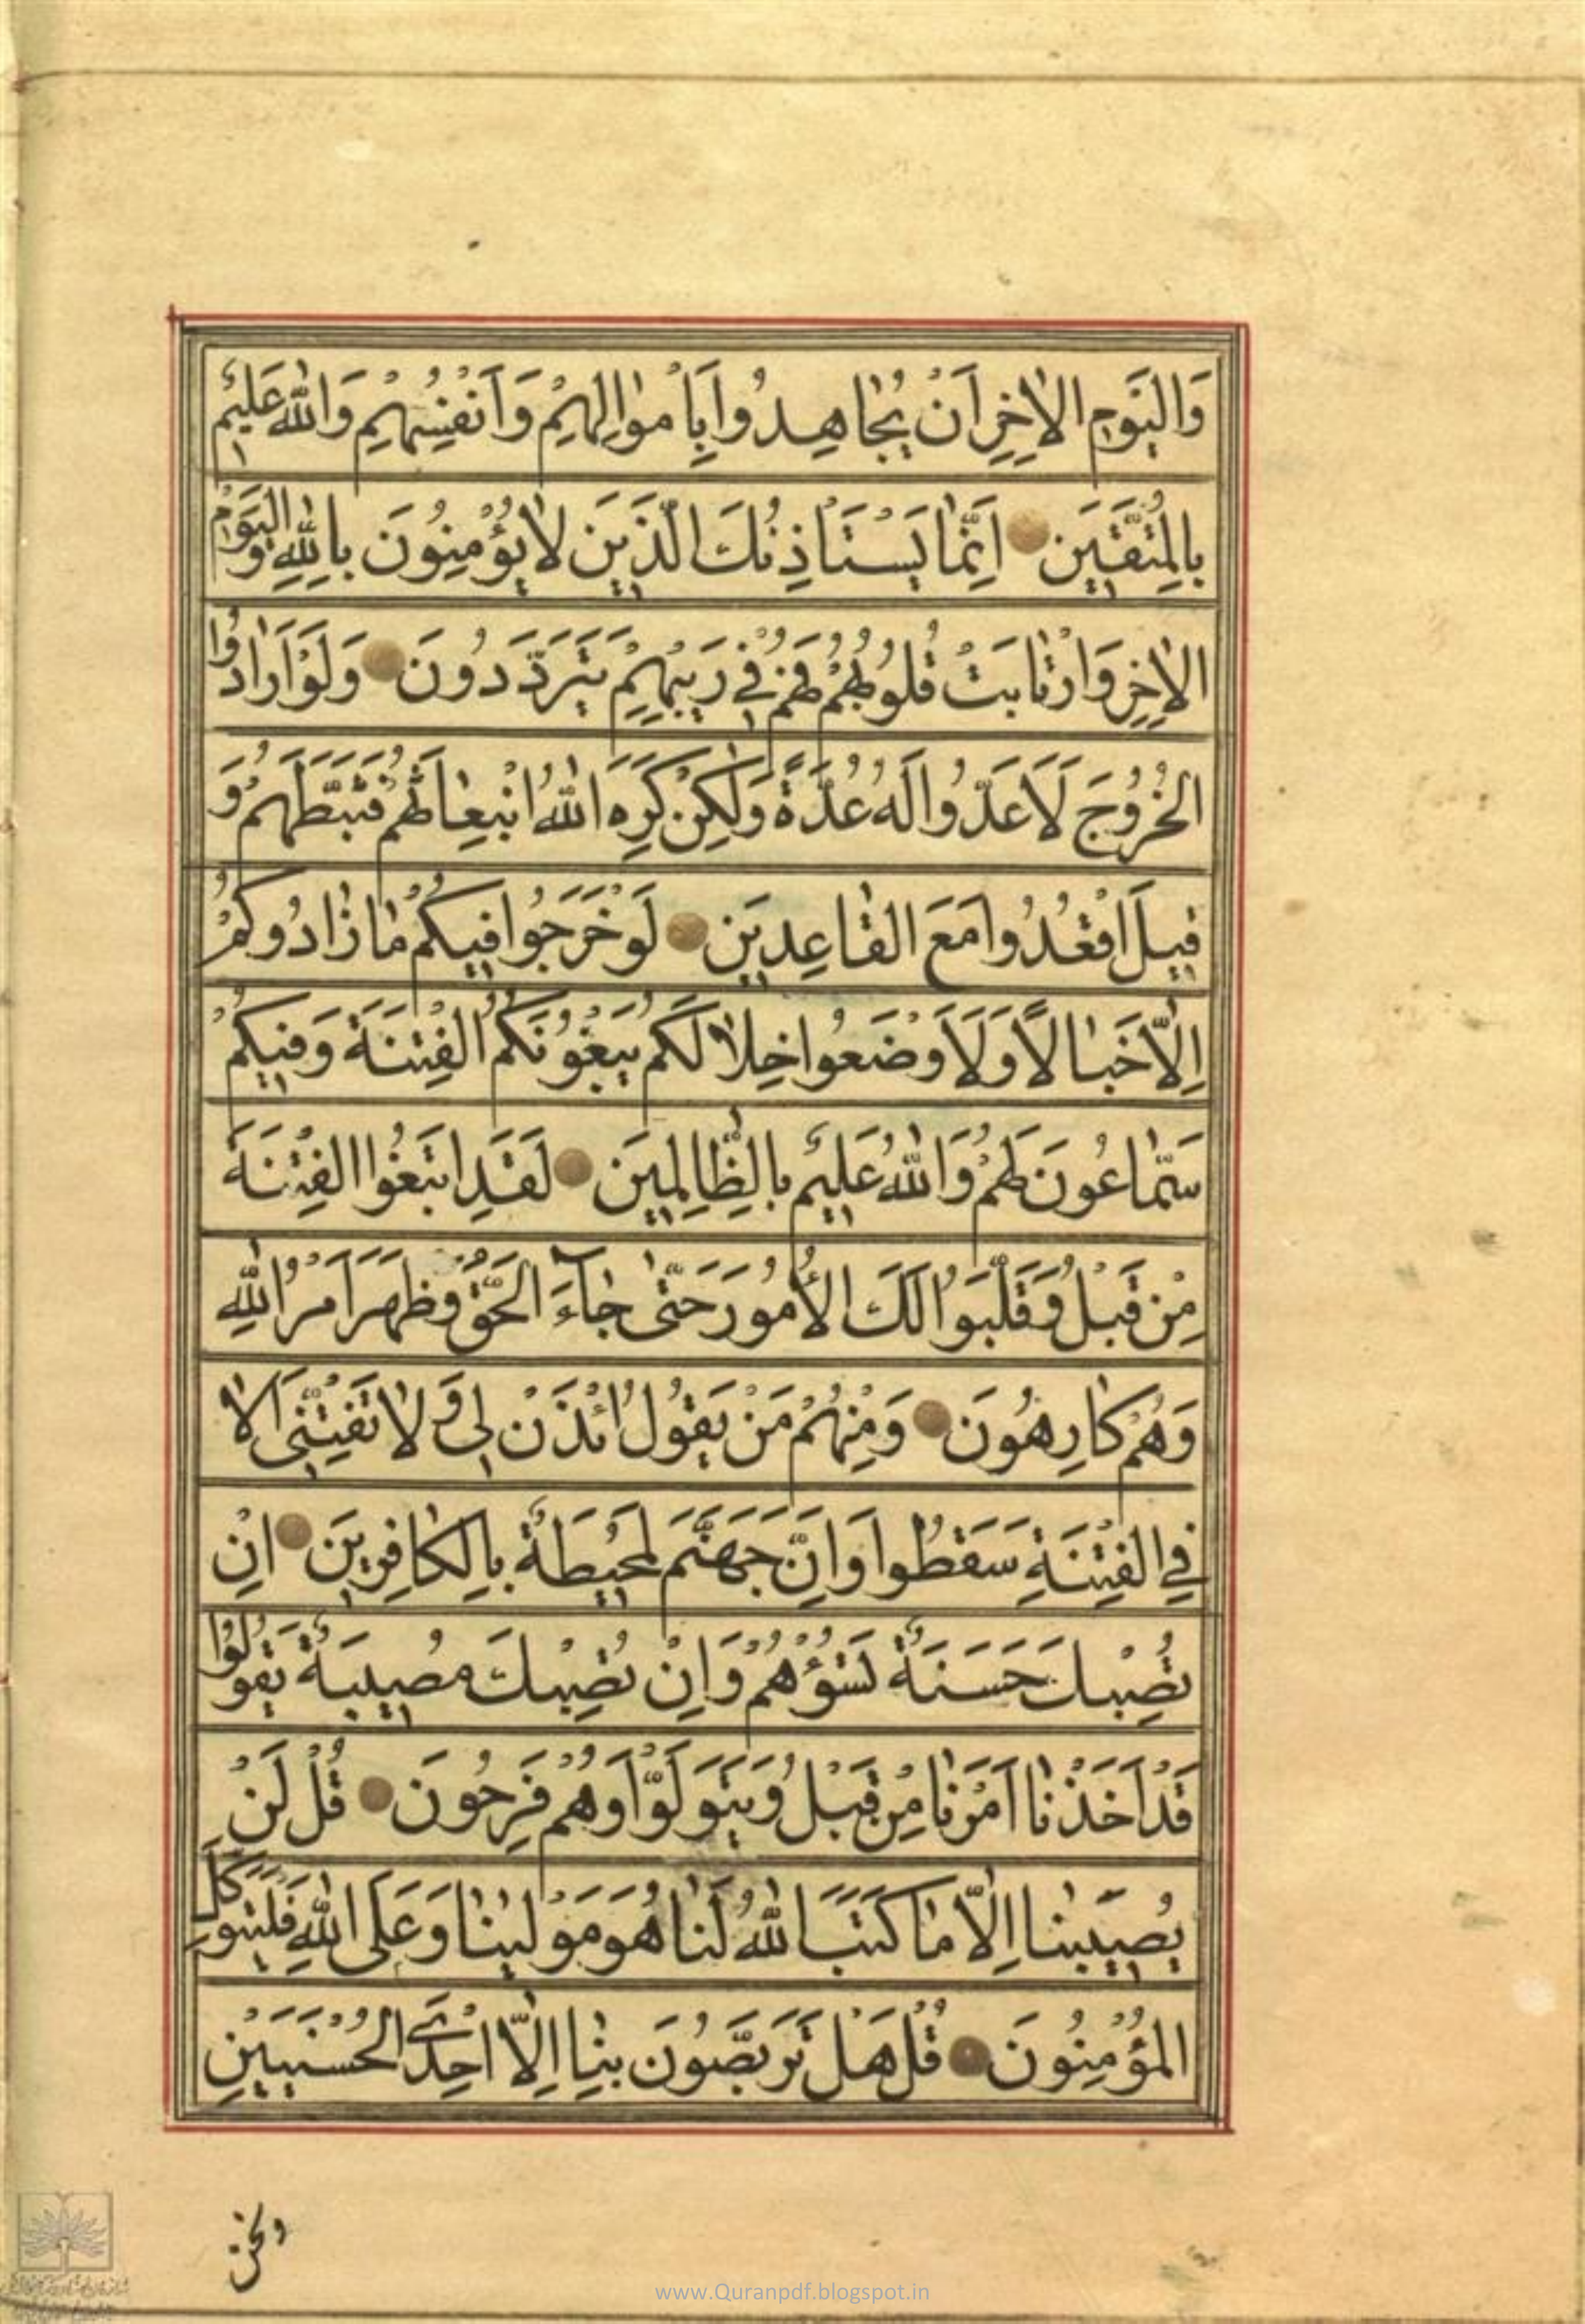 وَالْيَوْمِ الْاٰخِرِ اَنْ يُجٰاهِدُوا بِاَمْوٰالِهِمْ وَاَنْفُسِهِمْ وَاللّٰهُ عَلِيمٌ
بِالْمُتَّقِينَ اِنَّمٰا يَسْتَاْذِنُكَ الَّذِينَ لٰا يُؤْمِنُونَ بِاللّٰهِ وَالْيَوْمِ
الْاٰخِرِ وَارْتٰابَتْ قُلُوبُهُمْ فَهُمْ فِي رَيْبِهِمْ يَتَرَدَّدُونَ وَلَوْ اَرٰادُوا
الْخُرُوجَ لَاَعَدُّوا لَهُ عُدَّةً وَلٰكِنْ كَرِهَ اللّٰهُ انْبِعٰاثَهُمْ فَثَبَّطَهُمْ وَ
قِيلَ اقْعُدُوا مَعَ الْقٰاعِدِينَ لَوْ خَرَجُوا فِيكُمْ مٰا زٰادُوكُمْ
اِلّٰا خَبٰالًا وَلَاَوْضَعُوا خِلٰالَكُمْ يَبْغُونَكُمُ الْفِتْنَةَ وَفِيكُمْ
سَمّٰاعُونَ لَهُمْ وَاللّٰهُ عَلِيمٌ بِالظّٰالِمِينَ لَقَدِ ابْتَغَوُا الْفِتْنَةَ
مِنْ قَبْلُ وَقَلَّبُوا لَكَ الْاُمُورَ حَتّٰى جٰاءَ الْحَقُّ وَظَهَرَ اَمْرُ اللّٰهِ
وَهُمْ كٰارِهُونَ وَمِنْهُمْ مَنْ يَقُولُ ائْذَنْ لِي وَلٰا تَفْتِنِّي اَلٰا
فِي الْفِتْنَةِ سَقَطُوا وَاِنَّ جَهَنَّمَ لَمُحِيطَةٌ بِالْكٰافِرِينَ اِنْ
تُصِبْكَ حَسَنَةٌ تَسُؤْهُمْ وَاِنْ تُصِبْكَ مُصِيبَةٌ يَقُولُوا
قَدْ اَخَذْنٰا اَمْرَنٰا مِنْ قَبْلُ وَيَتَوَلَّوْا وَهُمْ فَرِحُونَ قُلْ لَنْ
يُصِيبَنٰا اِلّٰا مٰا كَتَبَ اللّٰهُ لَنٰا هُوَ مَوْلٰينٰا وَعَلَى اللّٰهِ فَلْيَتَوَكَّلِ
الْمُؤْمِنُونَ قُلْ هَلْ تَرَبَّصُونَ بِنٰا اِلّٰا اِحْدَى الْحُسْنَيَيْنِ
ونحن
www.Quranpdf.blogspot.in